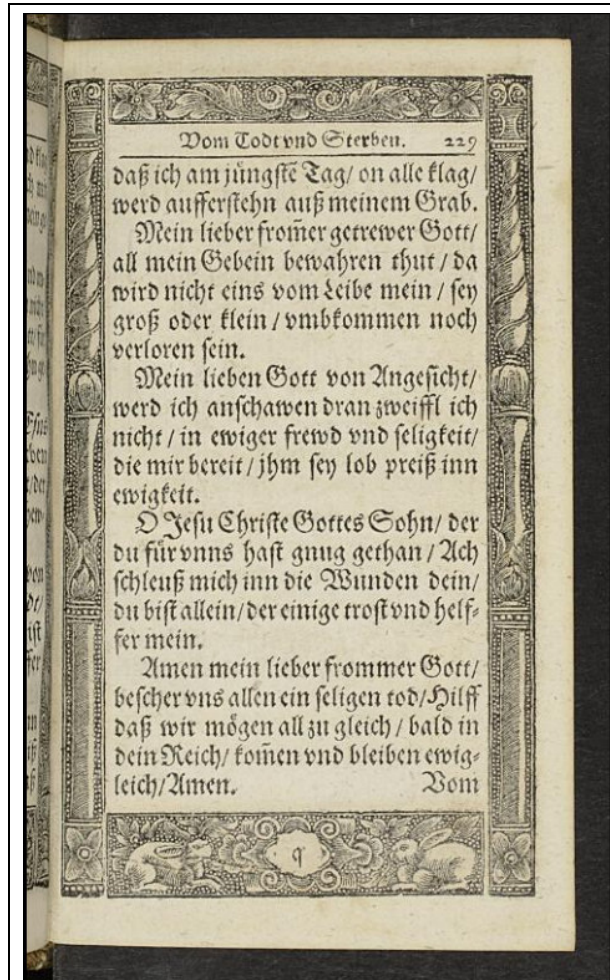 Vom Todt vnd Sterben. 229
daß ich am jüngstẽ Tag/ on alle klag/
werd aufferstehn auß meinem Grab.
Mein lieber from̃er getrewer Gott/
all mein Gebein bewahren thut / da
wird nicht eins vom Leibe mein / sey
groß oder klein / vmbkommen noch
verloren sein.
Mein lieben Gott von Angesicht/
werd ich anschawen dran zweiffl ich
nicht / in ewiger frewd vnd seligkeit/
die mir bereit / jhm sey lob preiß inn
ewigkeit.
O Jesu Christe Gottes Sohn/ der
du für vnns hast gnug gethan / Ach
schleuß mich inn die Wunden dein/
du bist allein/ der einige trost vnd helf-
fer mein.
Amen mein lieber frommer Gott/
bescher vns allen ein seligen tod/ Hilff
daß wir mögen all zu gleich / bald in
dein Reich/ kom̃en vnd bleiben ewig-
leich/ Amen. Vom
q